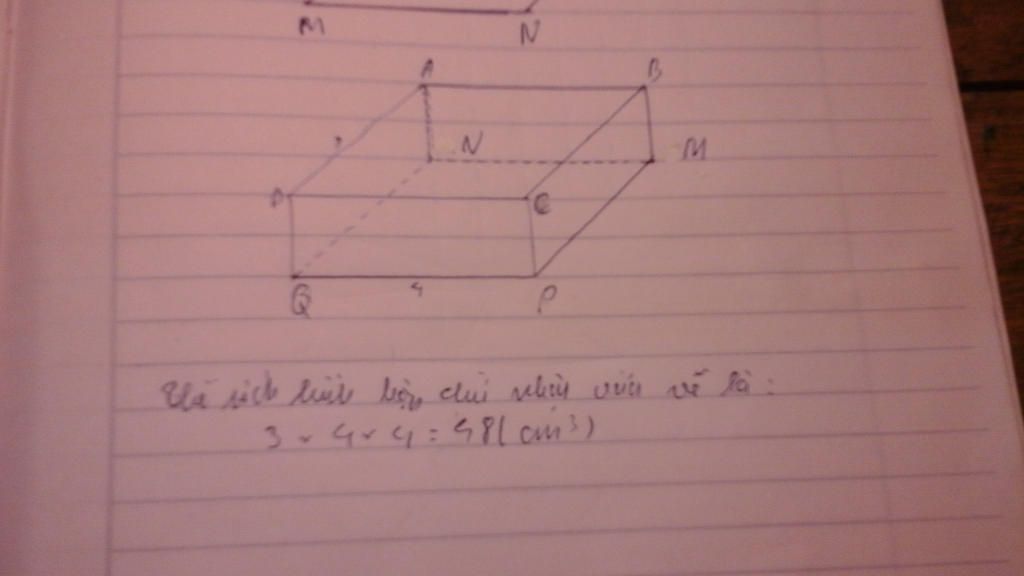 M N
A B
N M
D C
Q 4 P
Thể tích hình hộp chữ nhật vừa vẽ là:
3 x 4 x 4 = 48 (cm³)